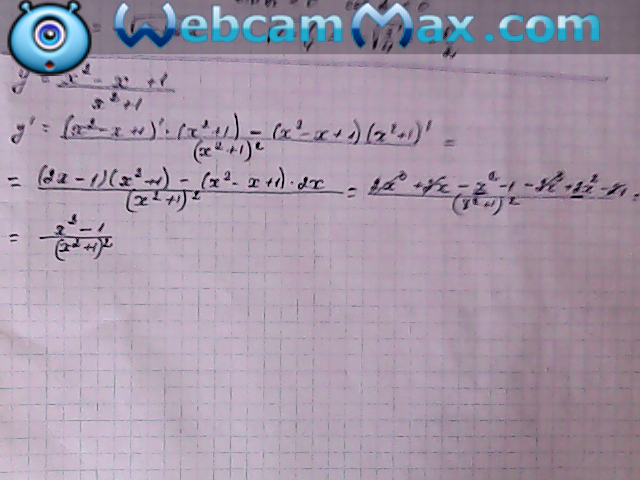 WebcamMax.com
y = x² - x + 1 / x² + 1
y' = (x² - x + 1)' · (x² + 1) - (x² - x + 1)(x² + 1)' / (x² + 1)² =
= (2x - 1)(x² + 1) - (x² - x + 1) · 2x / (x² + 1)² = 2x³ + 2x - x² - 1 - 2x³ + 2x² - 2x / (x² + 1)² =
= x² - 1 / (x² + 1)²